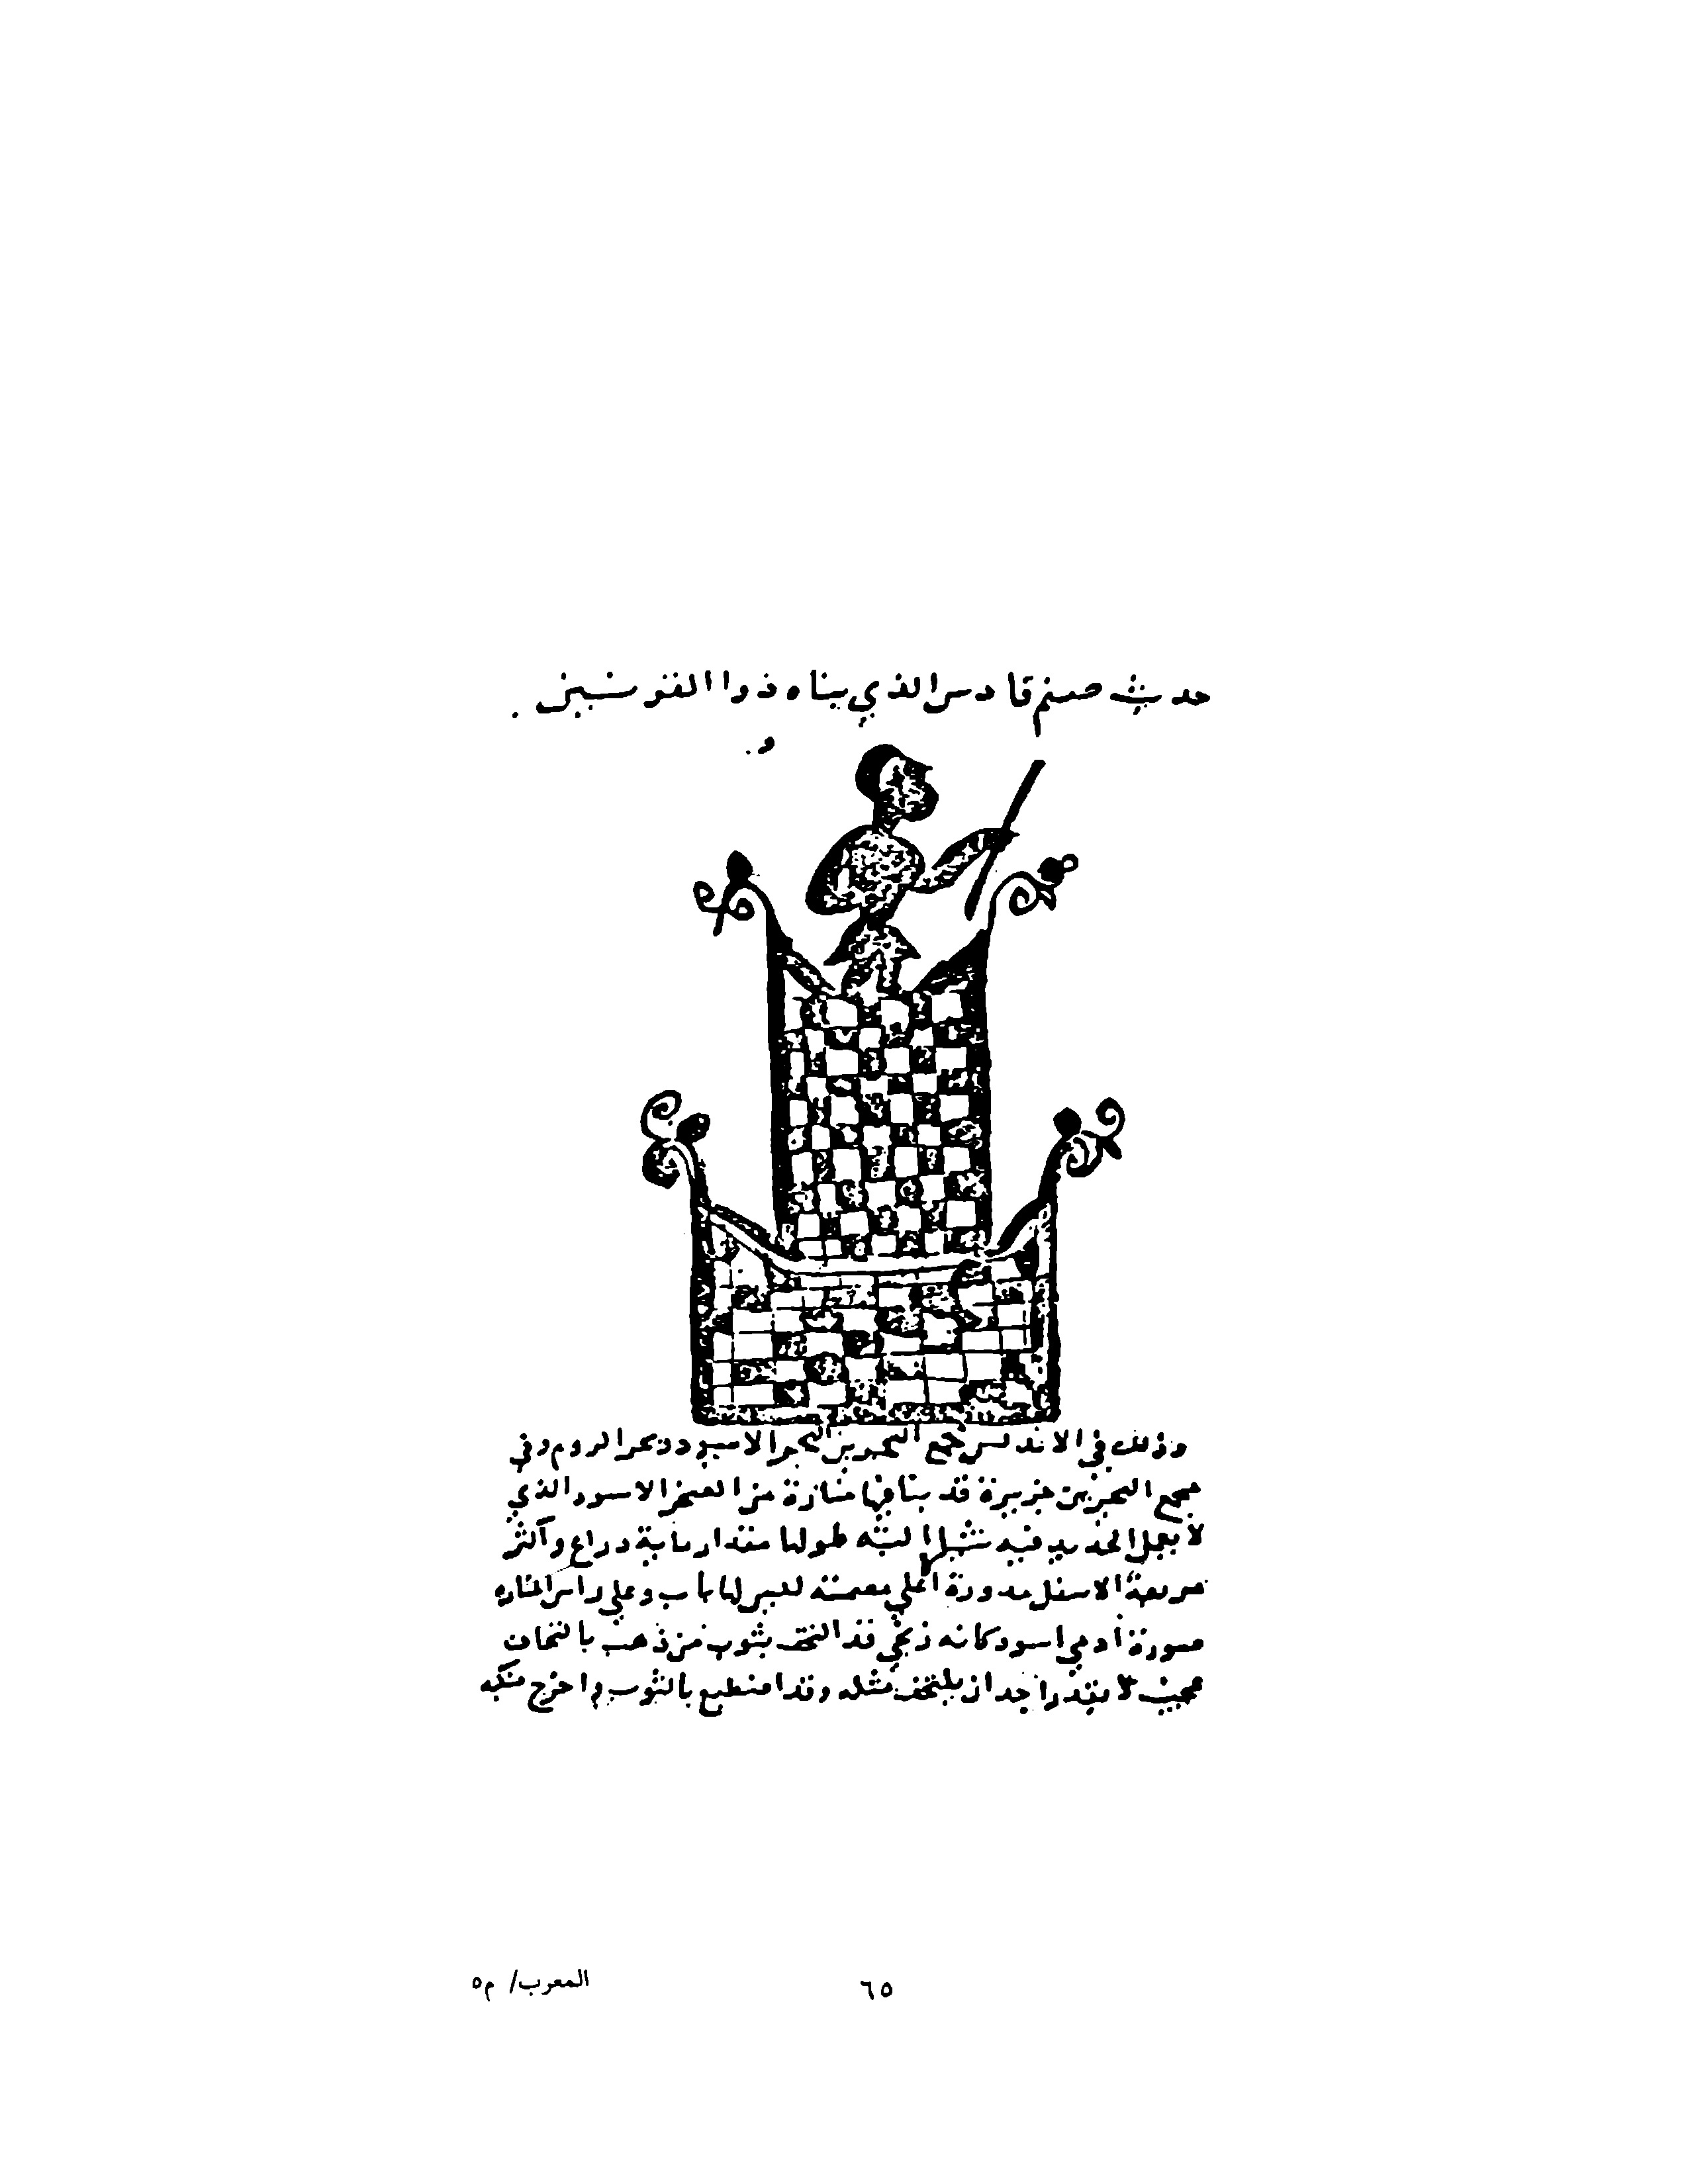 حديث صنم قادس الذي بناه ذوا القرنين
و
وذلك في الاندلس مجمع البحرين البحر الاسود وبحر الروم وفي
مجمع البحرين جزيرة قد بنا فيها منارة من الصخر الاسود الذي
لا يعمل الحديد فيه البته طولها مقدار ماية دراع وأكثر
مربعة الاسفل مدورة اعلي مصمتة ليس لها باب وعلي راس المناره
صورة أدمي اسود كانه زنجي قد التحف بثوب من ذهب بالتحاف
عجيب لا يقدر احد ان يلتحف مثله وقد انطبع بالثوب واخرج منكبه
٦٥
المعرب/ م٥